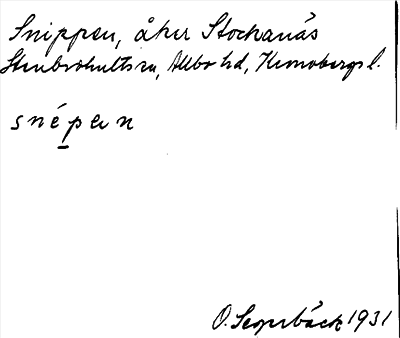 Snippen, åker Stockanäs
Stenbrohults sn, Allbo hd, Kronobergs l.
snépen
O. Segerbäck 1931